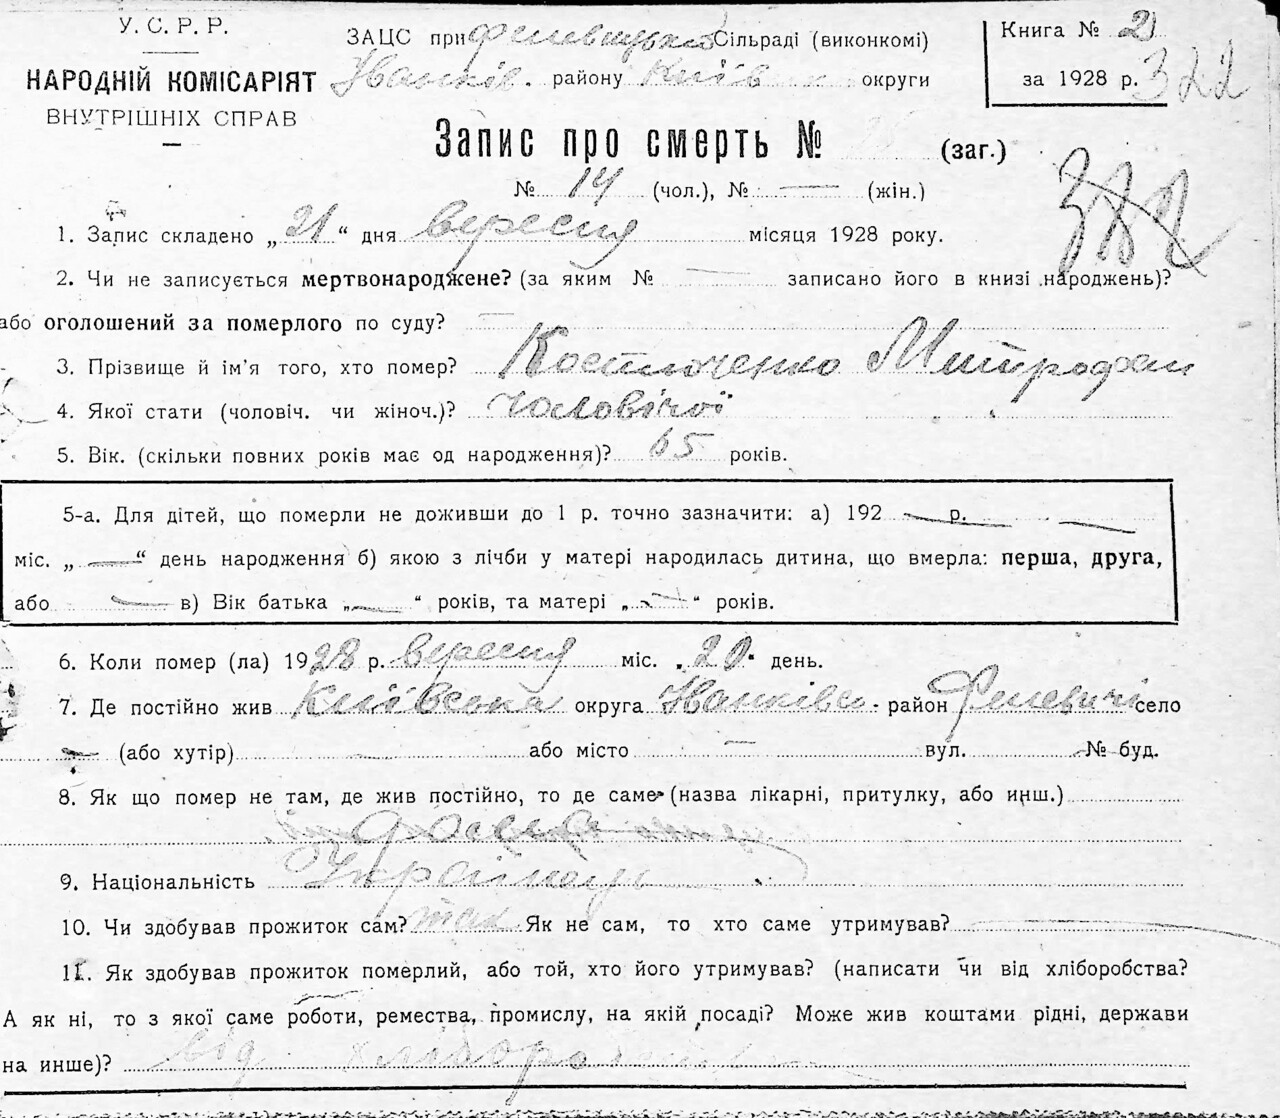 У. С. Р. Р.
НАРОДНІЙ КОМІСАРІЯТ
ВНУТРІШНІХ СПРАВ
ЗАЦС при Феневицькій Сільраді (виконкомі)
Іванків. району Київ округи
Книга № 2
за 1928 р. 322
Запис про смерть № (заг.)
№ 14 (чол.), № — (жін.)
322
1. Запис складено „21“ дня вересня місяця 1928 року.
2. Чи не записується мертвонароджене? (за яким № — записано його в книзі народжень)?
або оголошений за померлого по суду? —
3. Прізвище й ім’я того, хто помер? Костюченко Митрофан
4. Якої стати (чоловіч. чи жіноч.)? чоловічої
5. Вік. (скільки повних років має од народження)? 65 років.
5-а. Для дітей, що померли не доживши до 1 р. точно зазначити: а) 192 — р. —
міс. „—“ день народження б) якою з лічби у матері народилась дитина, що вмерла: перша, друга,
або — в) Вік батька „—“ років, та матері „—“ років.
6. Коли помер (ла) 1928 р. вересня міс. „20“ день.
7. Де постійно жив Київська округа Іванківс. район Феневичі село
— (або хутір) — або місто — вул. № буд.
8. Як що помер не там, де жив постійно, то де саме (назва лікарні, притулку, або инш.)
9. Національність Українець
10. Чи здобував прожиток сам? так Як не сам, то хто саме утримував? —
11. Як здобував прожиток померлий, або той, хто його утримував? (написати чи від хліборобства?
А як ні, то з якої саме роботи, ремества, промислу, на якій посаді? Може жив коштами рідні, держави
на инше)? від хліборобства